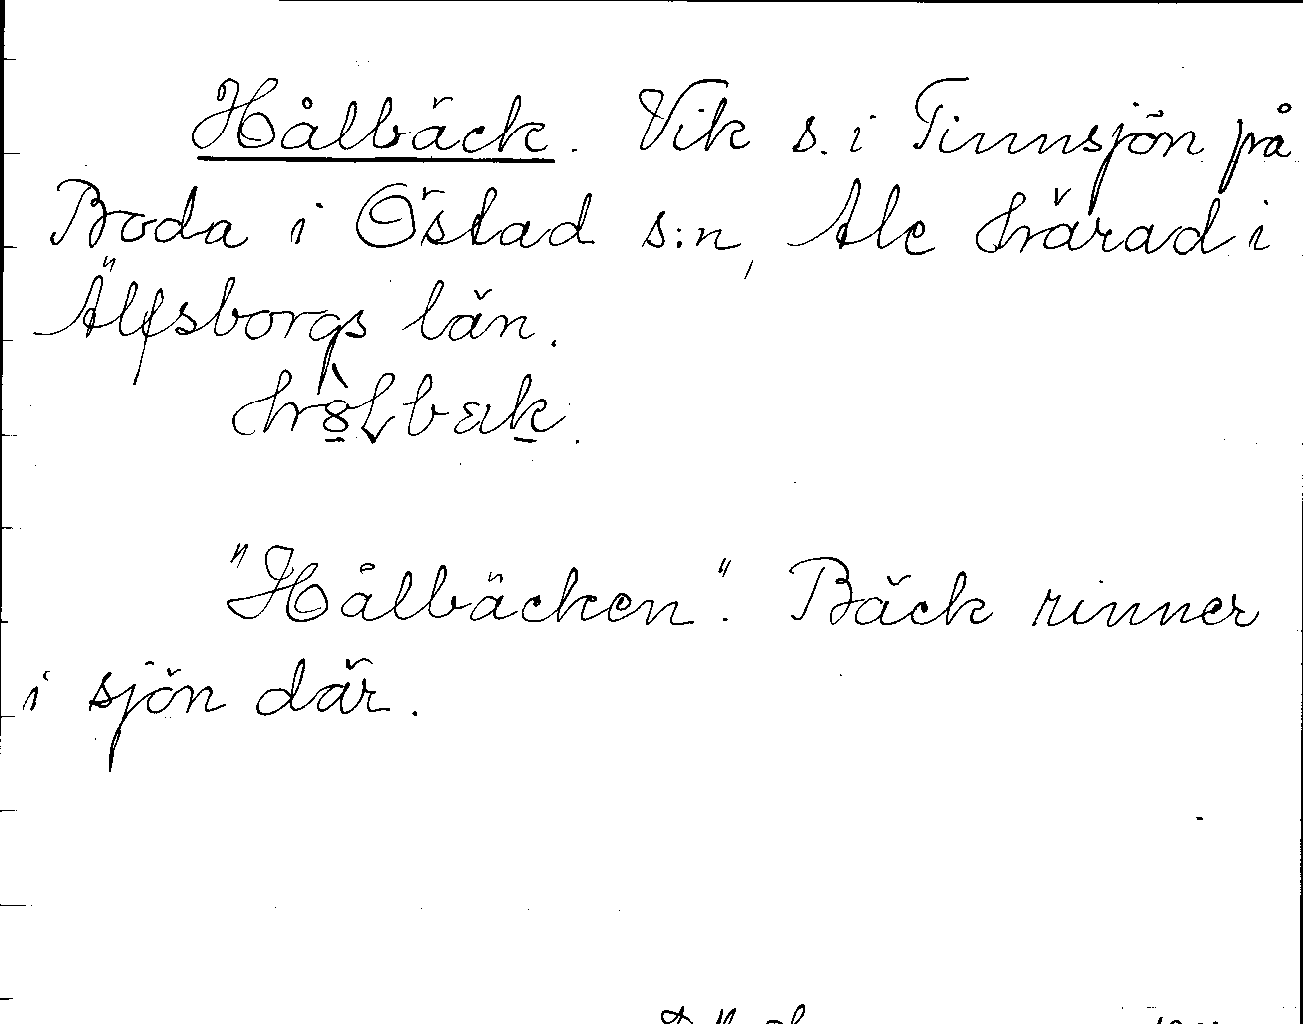 Hålbäck. Vik s. i Tinnsjön på
Boda i Östad s:n, Ale härad i
Älfsborgs län.
"Hålbäcken". Bäck rinner
i sjön där.